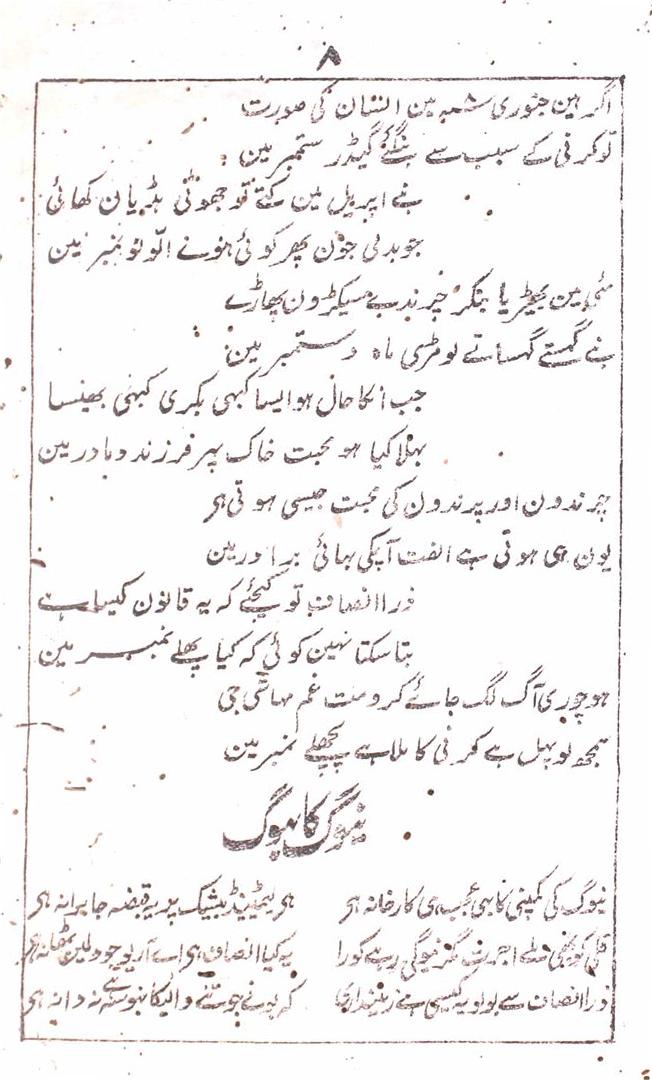 ۸
اگر ہین جنوری شعبہ مین انسان کی صورت
تو کرنی کے سبب سے بنگئے گیڈر ستمبر مین
بنے اپریل مین کتے تو جھوٹی ہڈیان کھائی
جو بدلی جون پھر کوئی ہونے الّو نومبر مین
مئی مین بھیڑیا بنکر چرندے سیکڑون پھاڑے
بنے گھستے گھساتے لومڑی ماہ دسمبر مین
جب انکا حال ہو ایسا کبہی بکری کبہی بھینسا
بہلا کیا ہو محبت خاک پہر فرزند و مادر مین
چرندون اور پرندون کی محبت جیسی ہوتی ہی
یون ہی ہوتی ہے الفت آپکی بہائی برادر مین
ذرا انصاف تو کیجئے کہ یہ قانون کیسا ہے
بتا سکتا نہین کوئی کہ کیا پچھلے نمبر مین
ہو چوری آگ لگ جائے کرو مت غم مہاشی جی
سمجھ لو پہل ہے کرنی کا ملا ہے پچھلے نمبر مین
نیوگ کا بہوگ
نیوگ کی کمپنی کا بہی عجب ہی کارخانہ ہی ہر لیمیٹینڈ بیشک پر یہ قبضہ جابرانہ ہی
قلی کو بھی ملے اجرت مگر نیوگی رہے کورا یہ کیا انصاف ہی اے آریو جو دلمین ٹھانہ ہی
ذرا انصاف سے بولو یہ کیسی ہے زمینداری کہ بونے جوتنے والیکا نہ بھوسہ نہ دانہ ہی